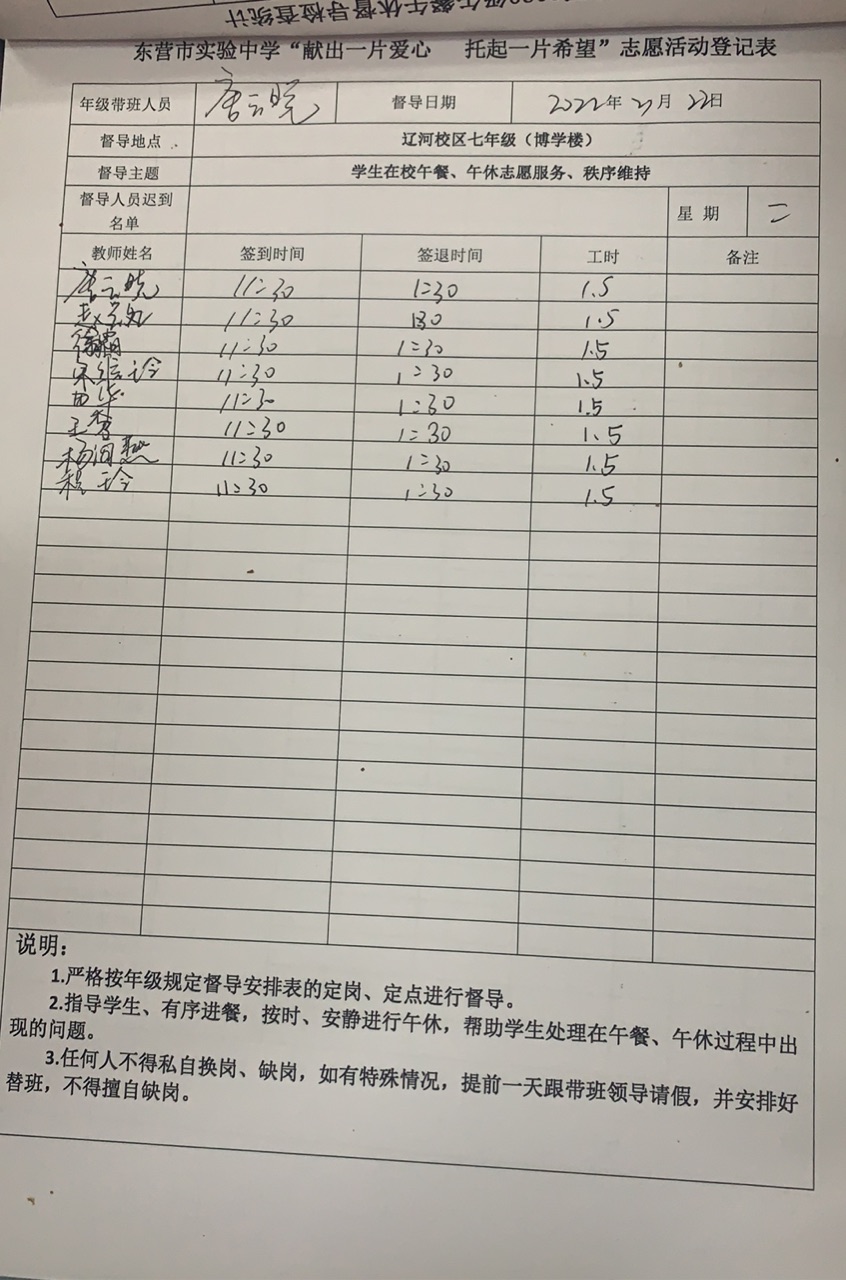 午餐午休督导检查统计
东营市实验中学“献出一片爱心 托起一片希望”志愿活动登记表
年级带班人员 唐云晓 督导日期 2022年 月 22日
督导地点 辽河校区七年级（博学楼）
督导主题 学生在校午餐、午休志愿服务、秩序维持
督导人员迟到名单 星期 二
教师姓名 签到时间 签退时间 工时 备注
唐云晓 11:30 1:30 1.5
11:30 130 1.5
11:30 1:30 1.5
11:30 1:30 1.5
11:30 1:30 1.5
11:30 1:30 1.5
杨润慧 11:30 1:30 1.5
程玲 11:30 1:30 1.5
说明：
1.严格按年级规定督导安排表的定岗、定点进行督导。
2.指导学生、有序进餐，按时、安静进行午休，帮助学生处理在午餐、午休过程中出
现的问题。
3.任何人不得私自换岗、缺岗，如有特殊情况，提前一天跟带班领导请假，并安排好
替班，不得擅自缺岗。